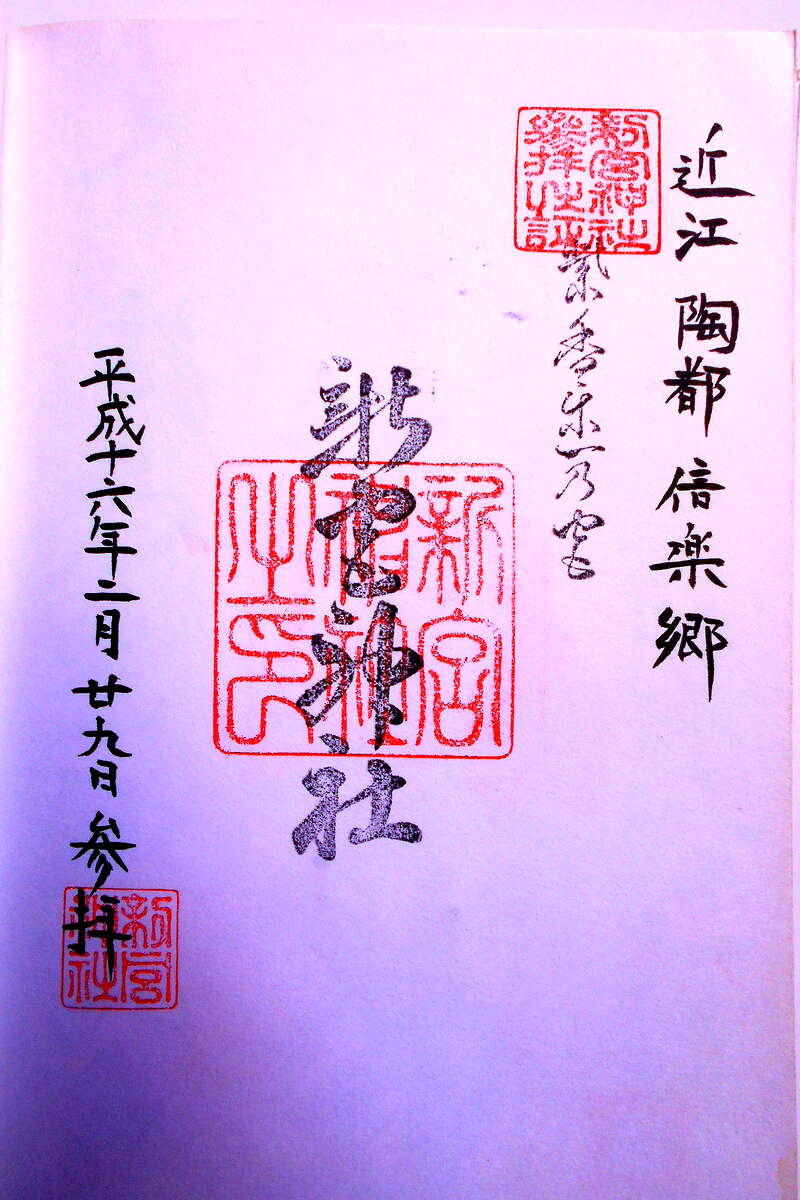 近江 陶都 信楽郷
新宮神社
參拝之証
紫香楽乃宮
新宮神社
新宮
神社
之印
平成十六年二月廿九日参拝
新宮
神社